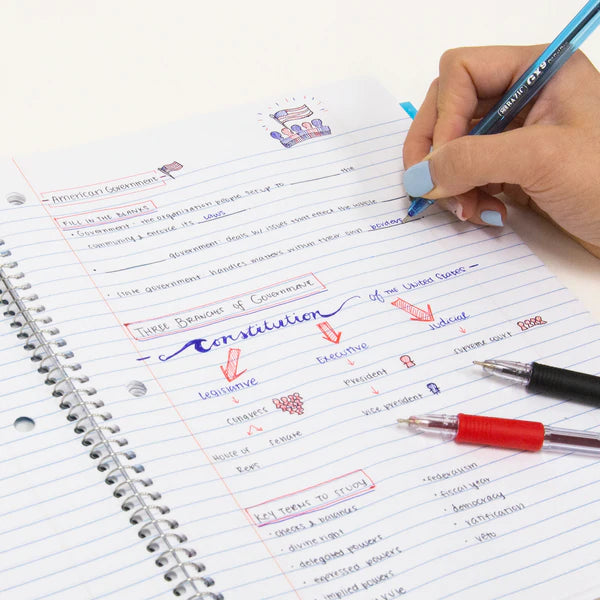 American Government
FILL IN THE BLANKS
· Government: the organization people set up to ________ the
community & enforce its laws
· ________ government: deals w/ issues that effect the whole ________
· state government: handles matters within their own borders
THREE BRANCHES of GOVERNMENT
- Constitution of the United States -
Legislative
Executive
Judicial
congress
President
supreme court
House of Reps
senate
vice president
KEY TERMS TO STUDY
· checks & balances
· divine right
· delegated powers
· expressed powers
· implied powers
· federalism
· fiscal year
· democracy
· ratification
· veto
ZEBRA Z1C GX9